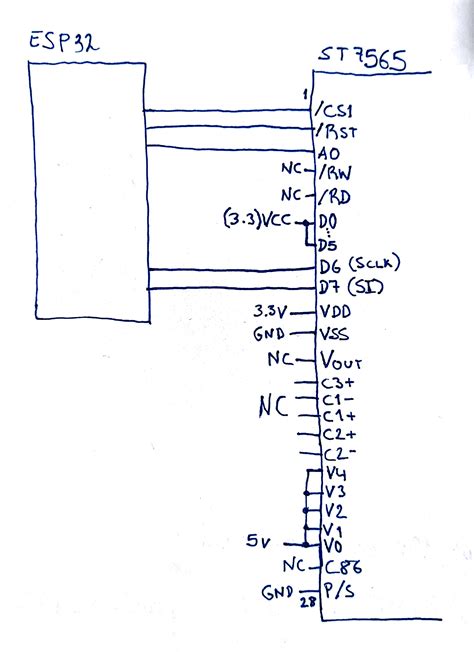 ESP32
ST7565
1
/CS1
/RST
A0
NC /RW
NC /RD
(3.3)VCC D0
D5
D6 (SCLK)
D7 (SI)
3.3V VDD
GND VSS
NC VOUT
C3+
C1-
NC C1+
C2+
C2-
V4
V3
V2
V1
5V V0
NC C86
GND 28 P/S